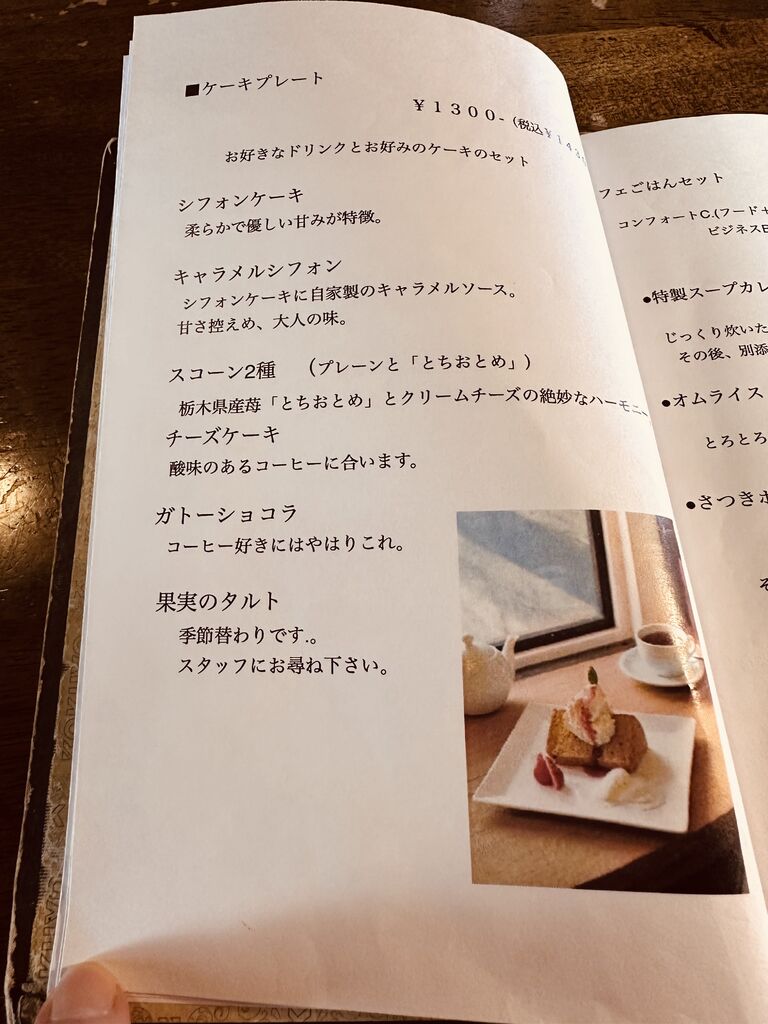 ■ケーキプレート
￥１３００- (税込￥143
お好きなドリンクとお好みのケーキのセット
シフォンケーキ
柔らかで優しい甘みが特徴。
キャラメルシフォン
シフォンケーキに自家製のキャラメルソース。
甘さ控えめ、大人の味。
スコーン2種　（プレーンと「とちおとめ」）
栃木県産苺「とちおとめ」とクリームチーズの絶妙なハーモニー
チーズケーキ
酸味のあるコーヒーに合います。
ガトーショコラ
コーヒー好きにはやはりこれ。
果実のタルト
季節替わりです.。
スタッフにお尋ね下さい。
フェごはんセット
コンフォートC.(フード+
ビジネス
●特製スープカレ
じっくり炊いた
その後、別添
●オムライス
とろとろ
●さつき
そ